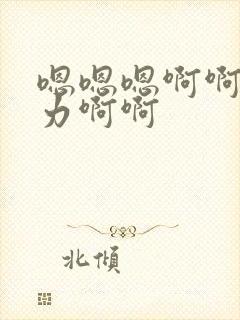 嗯嗯嗯啊啊
力啊啊
北倾